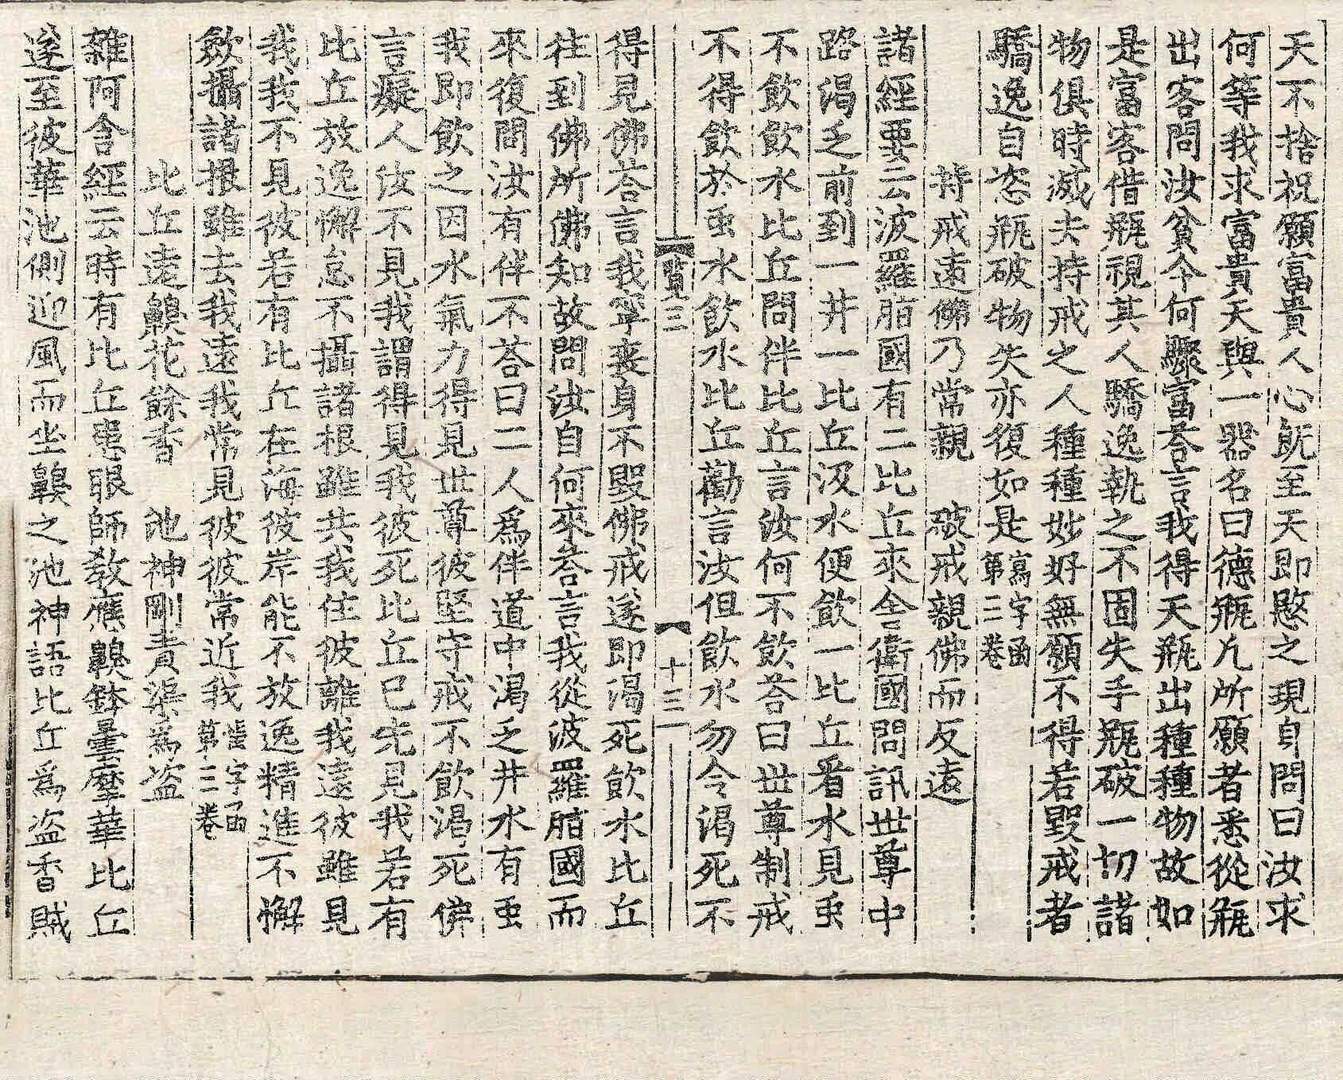 天不捨祝願富貴人心旣至天即愍之現身問曰汝求
何等我求富貴天與一器名曰德甁凢所願者悉從甁
出客問汝貧今何驟富荅言我得天甁出種種物故如
是富客借甁視其人驕逸執之不固失手甁破一切諸
物俱時滅夫持戒之人種種妙好無願不得若毀戒者
驕逸自恣甁破物失亦復如是寫字函第二卷
持戒遠佛乃常親　破戒親佛而反遠
諸經要云波羅脂國有二比丘來舍衛國問訊世尊中
路渴乏前到一井一比丘汲水便飲一比丘看水見䖝
不飲飲水比丘問伴比丘言汝何不飲荅曰世尊制戒
不得飲於䖝水飲水比丘勸言汝但飲水勿令渴死不
賢三　十三
得見佛荅言我寧喪身不毀佛戒遂即渴死飲水比丘
往到佛所佛知故問汝自何來荅言我從波羅脂國而
來復問汝有伴不荅曰二人爲伴道中渴乏井水有䖝
我即飲之因水氣力得見世尊彼堅守戒不飲渴死佛
言癡人汝不見我謂得見我彼死比丘已先見我若有
比丘放逸懈怠不攝諸根雖共我住彼離我遠彼雖見
我我不見彼若有比丘在海彼岸能不放逸精進不懈
歛攝諸根雖去我遠我常見彼彼常近我螢字函第二卷
比丘遠齅花餘香　池神剛責渠爲盜
雜阿含經云時有比丘患眼師教應齅鉢曇摩華比丘
遂至彼華池側迎風而坐齅之池神語比丘爲盜香賊